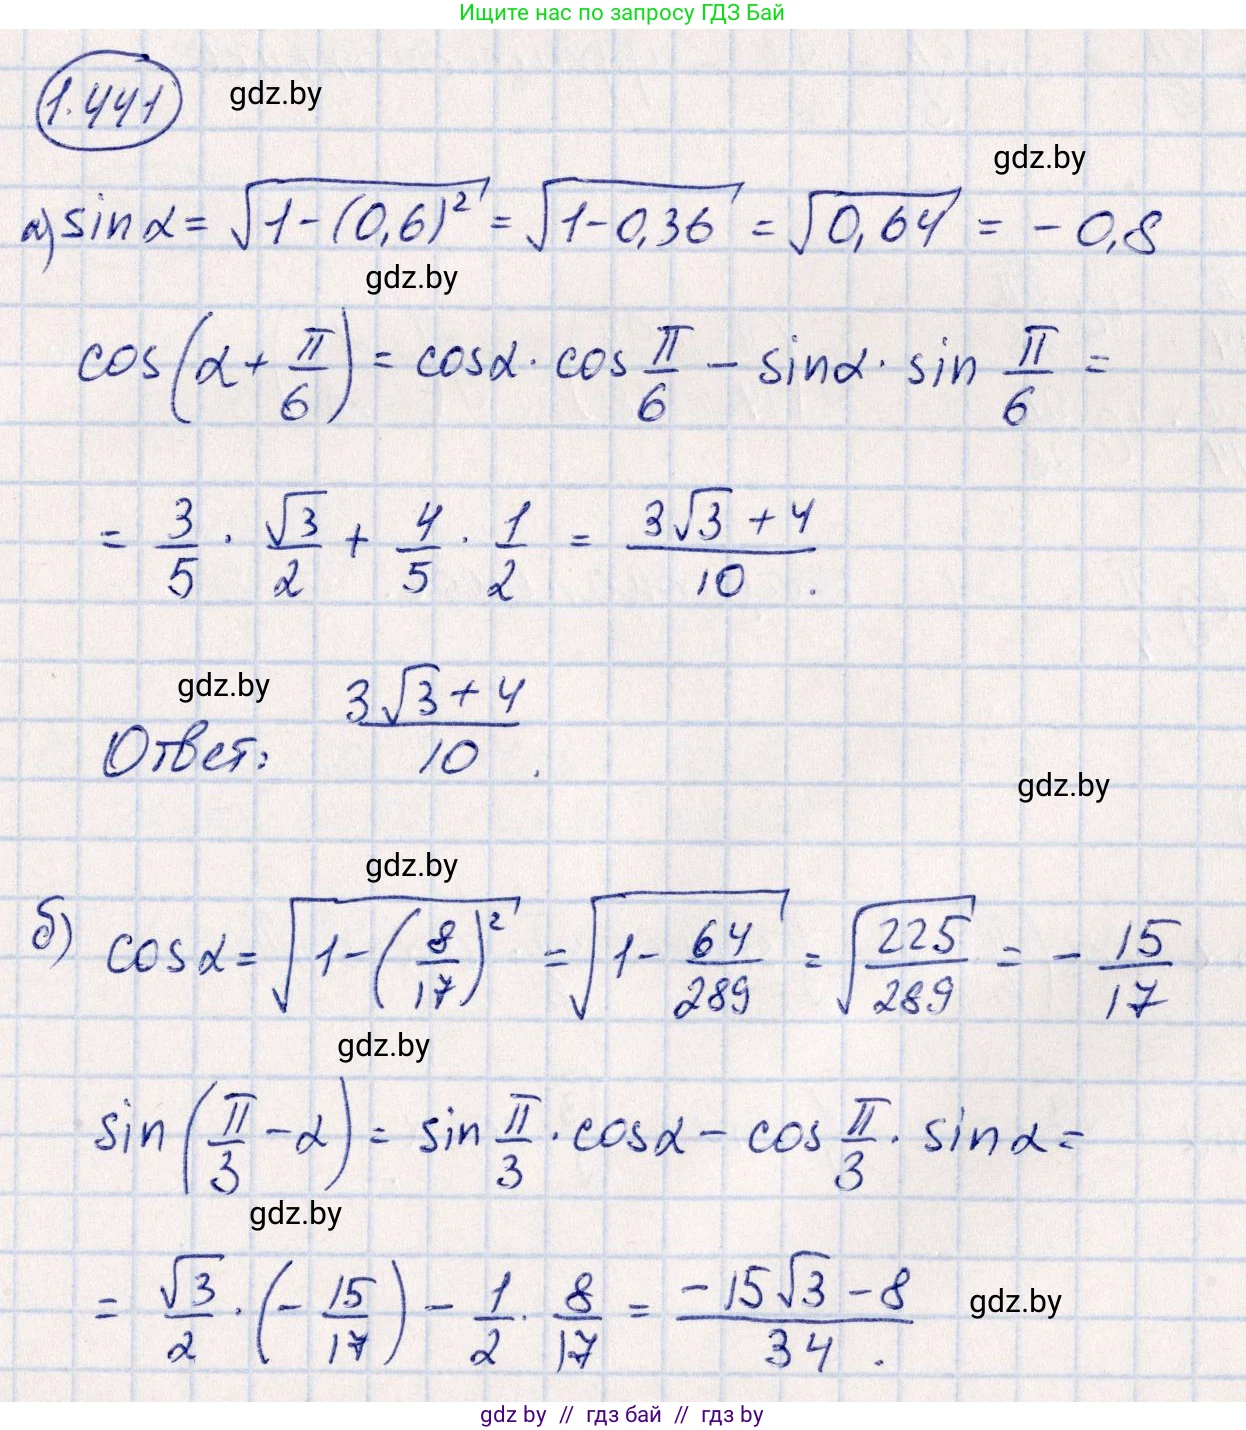 Ищите нас по запросу ГДЗ Бай
1.441 gdz.by
gdz.by
а) sin α = √(1-(0,6)²) = √(1-0,36) = √(0,64) = -0,8
gdz.by
cos(α + π/6) = cos α · cos π/6 - sin α · sin π/6 =
= 3/5 · √3/2 + 4/5 · 1/2 = (3√3 + 4)/10.
gdz.by
Ответ: (3√3 + 4)/10.
gdz.by
gdz.by
б) cos α = √(1-(8/17)²) = √(1-64/289) = √(225/289) = -15/17
gdz.by
sin(π/3 - α) = sin π/3 · cos α - cos π/3 · sin α =
gdz.by
= √3/2 · (-15/17) - 1/2 · 8/17 = (-15√3 - 8)/34. gdz.by
gdz by // гдз бай // гдз by